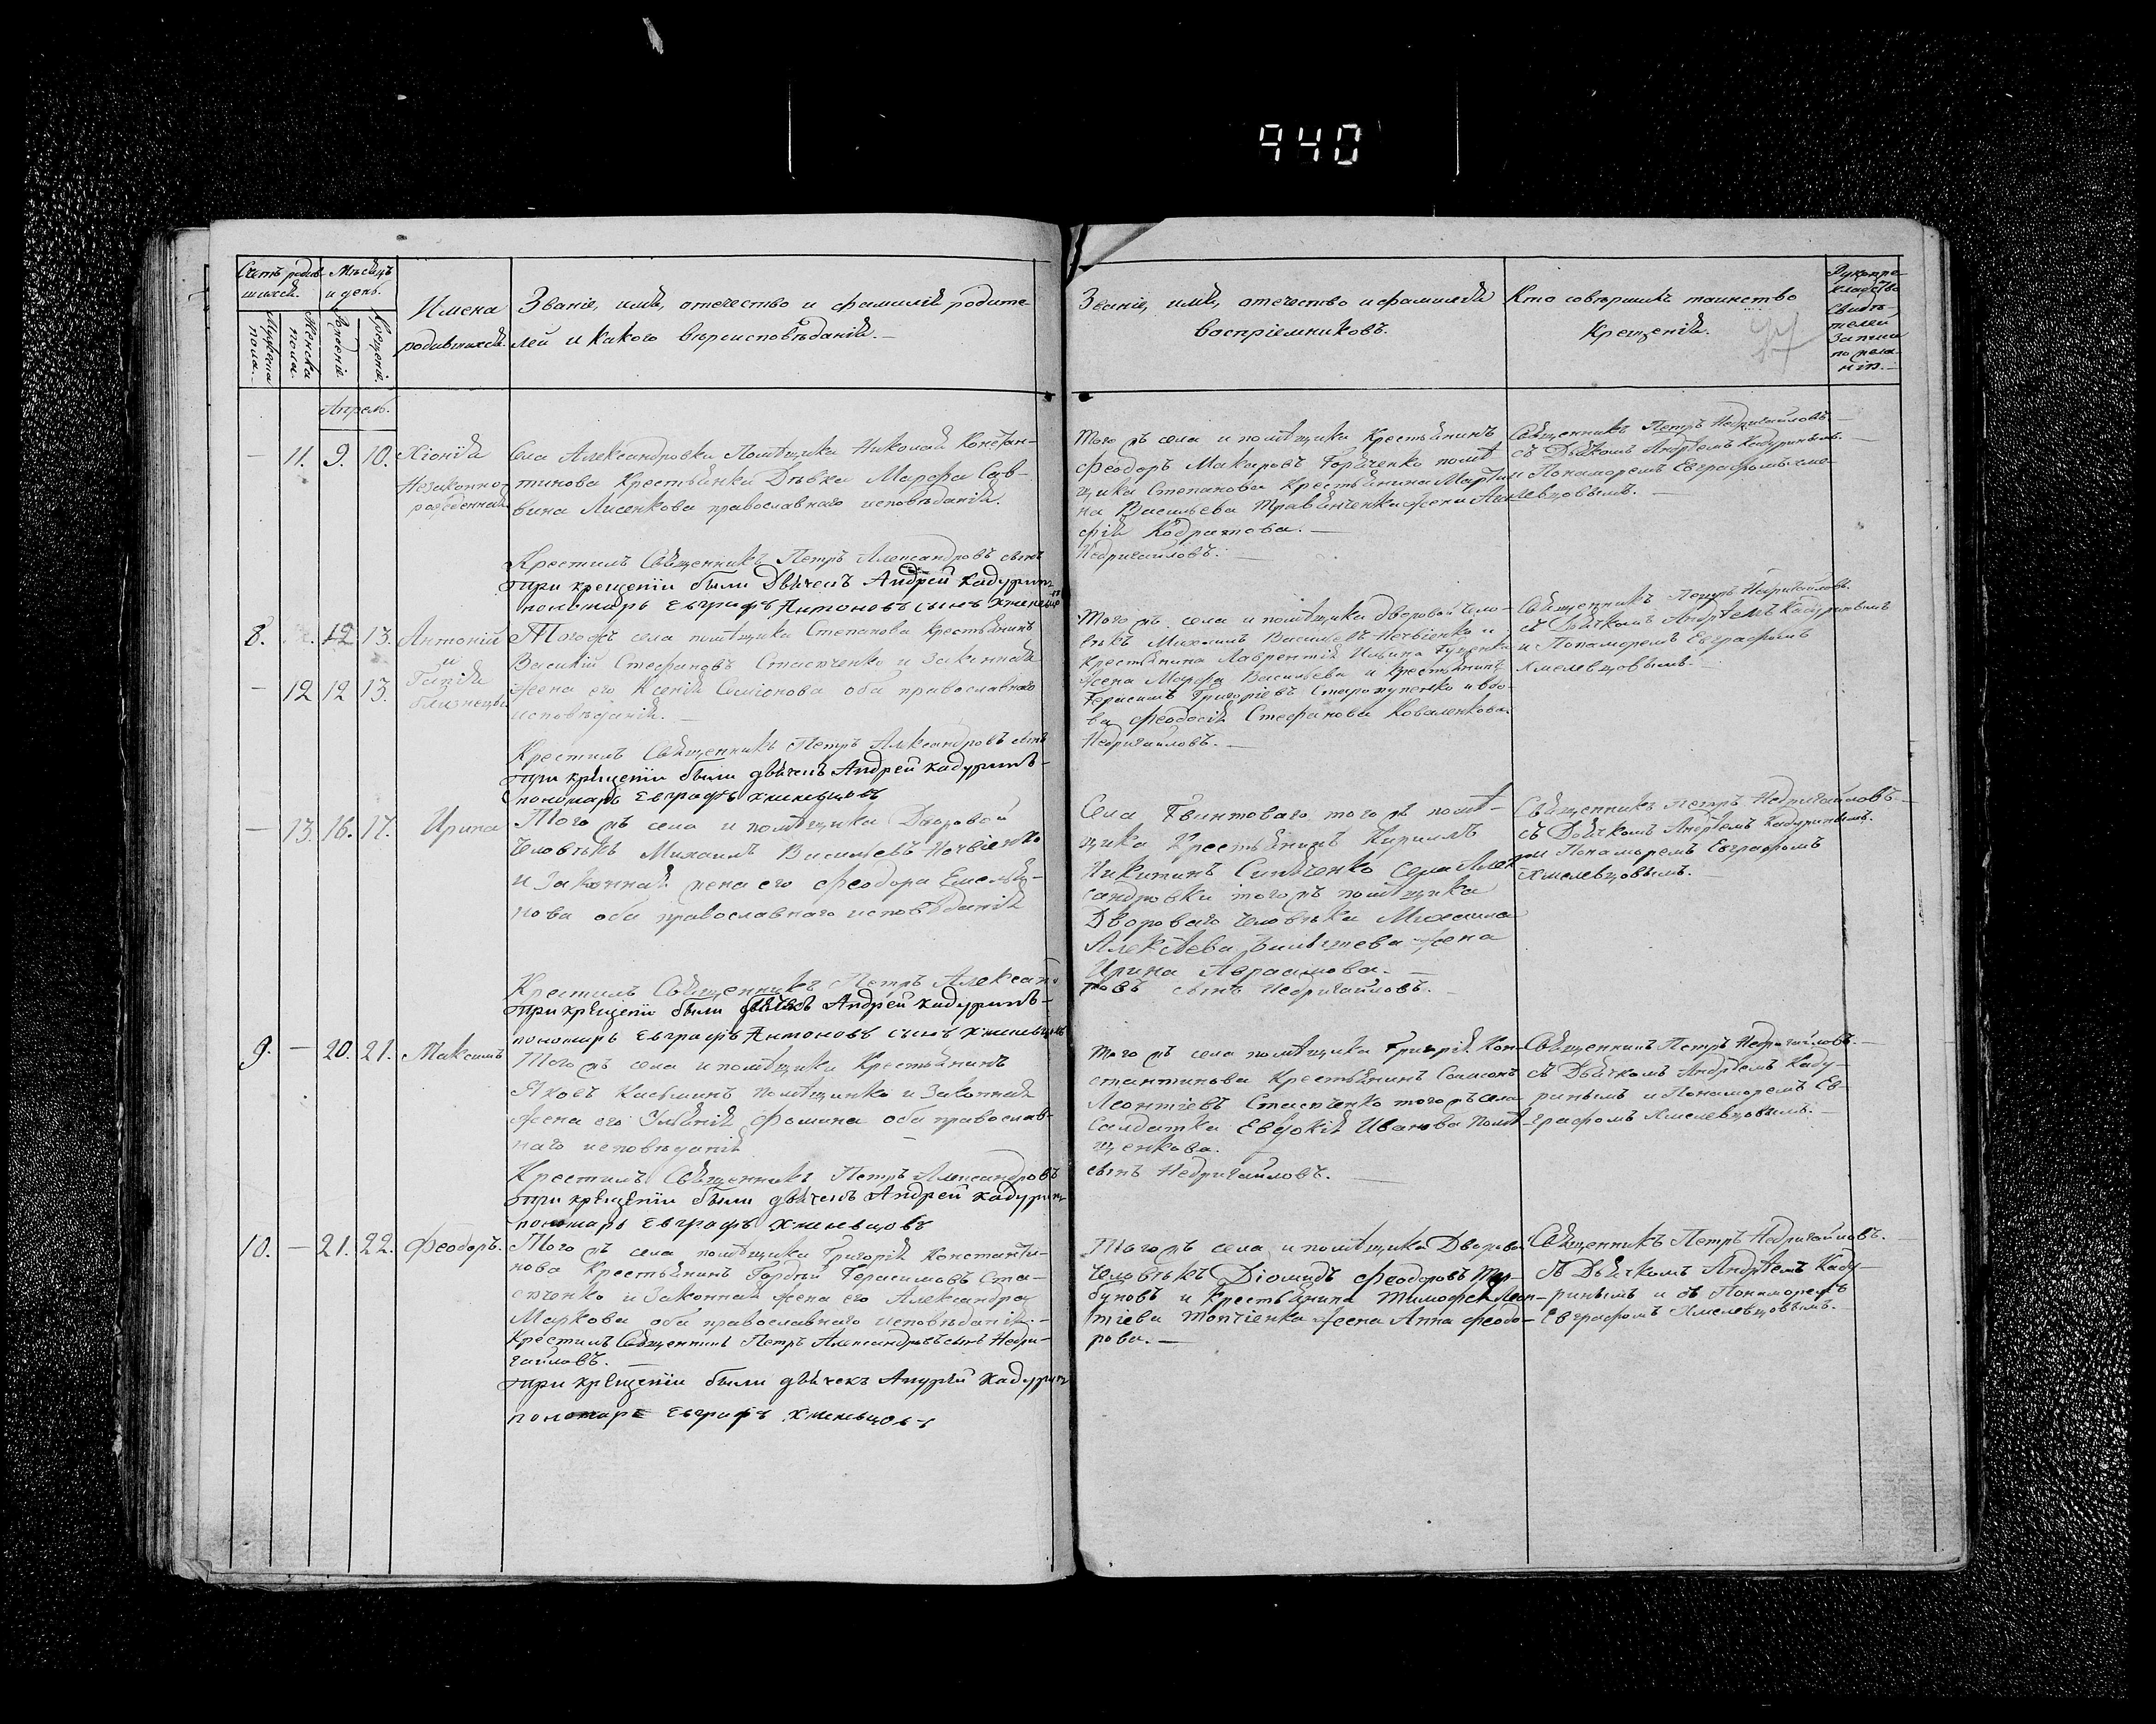 940
Счетъ родив-
шихся.
Мѣсяцъ
и день.
Мужеска
пола.
Женска
пола.
Рожденіе.
Крещеніе.
Имена
родившихся.
Званіе, имя, отечество и фамилія родите
лей и какого вѣроисповѣданія.
Званіе, имя, отечество и фамилія
воспріемниковъ.
Кто совершилъ таинство
Крещенія.
Рукопри-
кладство
свидѣ-
телей
записи
по жела-
нію.
Апрель.
— 11. 9. 10. Хіонія
Незаконно-
рожденная
Села Александровки Помѣщика Николая Констан-
тинова Крестьянки Дѣвка Марфа Сав-
вина Лисенкова православнаго исповѣданія.
Крестилъ Священникъ Петръ Александровъ сынъ
При крещеніи были Дьячекъ Андрей Кадуринъ
пономарь Евграфъ Антоновъ сынъ Хмелевцовъ
Того жъ села и помѣщика Крестьянинъ
Феодоръ Макаровъ Горяченко помѣ
щика Степанова Крестьянина Марти
на Васильева Травянченка жена Ага
фія Кодратова.
Недригайловъ.
Священникъ Петръ Недригайловъ
съ Дьячкомъ Андреемъ Кадуринымъ
и Понамаремъ Евграфомъ Хме-
левцовымъ.
8. 12. 13. Антоній
и
— 12 12 13. Гапія
близнецы
Того жъ села помѣщика Степанова крестьянинъ
Василій Стефановъ Стасюченко и законная
жена его Ксенія Симіонова оба православнаго
исповѣданія.
Крестилъ Священникъ Петръ Александровъ сынъ
При крещеніи были дьячекъ Андрей Кадуринъ
пономарь Евграфъ Хмелевцовъ
Того жъ села и помѣщика дворовой чело-
вѣкъ Михаилъ Васильевъ Ночвіенко и
Крестьянина Лаврентія Ильина
жена Марфа Васильева и Крестьянинъ
Герасимъ Григоріевъ и вдо-
ва Феодосія Стефанова Коваленкова
Недригайловъ.
Священникъ Петръ Недригайловъ
съ Дьячкомъ Андреемъ Кадуринымъ
и Понамаремъ Евграфомъ
Хмелевцовымъ.
— 13. 16. 17. Ирина
Того жъ села и помѣщика Дворовой
человѣкъ Михаилъ Васильевъ Ночвіенко
и Законная жена его Феодора Емелья-
нова оба православнаго исповѣданія
Крестилъ Священникъ Петръ Алексан
При крещеніи были дьячекъ Андрей Кадуринъ
пономарь Евграфъ Антоновъ сынъ Хмелевцовъ
Села Гвинтоваго того жъ помѣ-
щика Крестьянинъ Кириллъ
Никитинъ Синяченко Села Алек
сандровки того жъ помѣщика
Дворовато человѣка Михаила
Алексѣева жена
Ирина Аврамова.
ровъ сынъ Недригайловъ.
Священникъ Петръ Недригайловъ
съ Дьячкомъ Андреемъ Кадуринымъ
и Понамаремъ Евграфомъ
Хмелевцовымъ.
9. — 20. 21. Максимъ
Того жъ села и помѣщика Крестьянинъ
Яковъ Касьминъ Помѣщинко и законная
жена его Ульянія Фомина оба православ-
наго исповѣданія
Крестилъ Священникъ Петръ Александровъ
При крещеніи были дьячекъ Андрей Кадуринъ
пономарь Евграфъ Хмелевцовъ
Того жъ села помѣщика Григорія Кон-
стантинова Крестьянинъ Самсонъ
Леонтіевъ Стасюченко того жъ села
Салдатка Евдокія Иванова Помѣ-
щенкова.
сынъ Недригайловъ.
Священникъ Петръ Недригайловъ.
съ Дьячкомъ Андреемъ Каду-
ринымъ и Понамаремъ Ев-
графомъ Хмелевцовымъ.
10. — 21. 22. Феодоръ.
Того жъ села помѣщика Григорія Константи-
нова Крестьянинъ Гордѣй Герасимовъ Ста-
сюченко и Законная жена его Александра
Маркова оба православнаго исповѣданія.
Крестилъ Священникъ Петръ Александровъ сынъ Недри-
гайловъ.
При крещеніи были дьячекъ Андрей Кадуринъ
пономарь Евграфъ Хмелевцовъ
Того жъ села и помѣщика Дворовой
человѣкъ Діомидъ Феодоровъ
и Крестьянина Тимофея Леон-
тіева жена Анна Феодо-
рова.
Священникъ Петръ Недригайловъ.
съ Дьячкомъ Андреемъ Каду-
ринымъ и съ Понамаремъ
Евграфомъ Хмелевцовымъ.